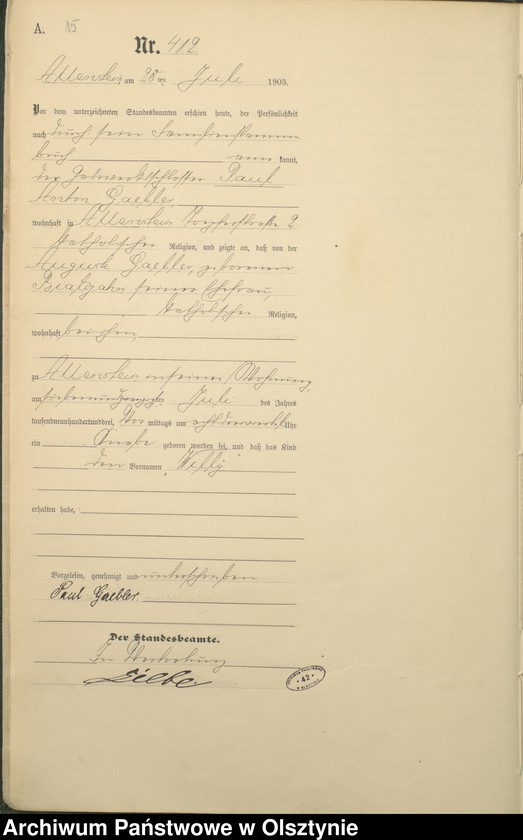 A. 15
Nr. 412
Allenstein am 28 ten Juli 1903.
Vor dem unterzeichneten Standesbeamten erschien heute, der Persönlichkeit
nach durch sein Familienstamm
buch anerkannt,
der Gaswerkschlosser Paul
Anton Gaebler,
wohnhaft in Allenstein 2
katholischer Religion, und zeigte an, daß von der
Auguste Gaebler, geborenen
Bialojahn seiner Ehefrau,
katholischer Religion,
wohnhaft bei ihm,
zu Allenstein in seiner Wohnung,
am siebenundzwanzigsten Juli des Jahres
tausendneunhundertunddrei, Vor mittags um acht dreiviertel Uhr
ein Knabe geboren worden sei, und daß das Kind
den Vornamen Willy
erhalten habe,
Vorgelesen, genehmigt und unterschrieben
Paul Gaebler.
Der Standesbeamte.
In Vertretung
42
Archiwum Państwowe w Olsztynie